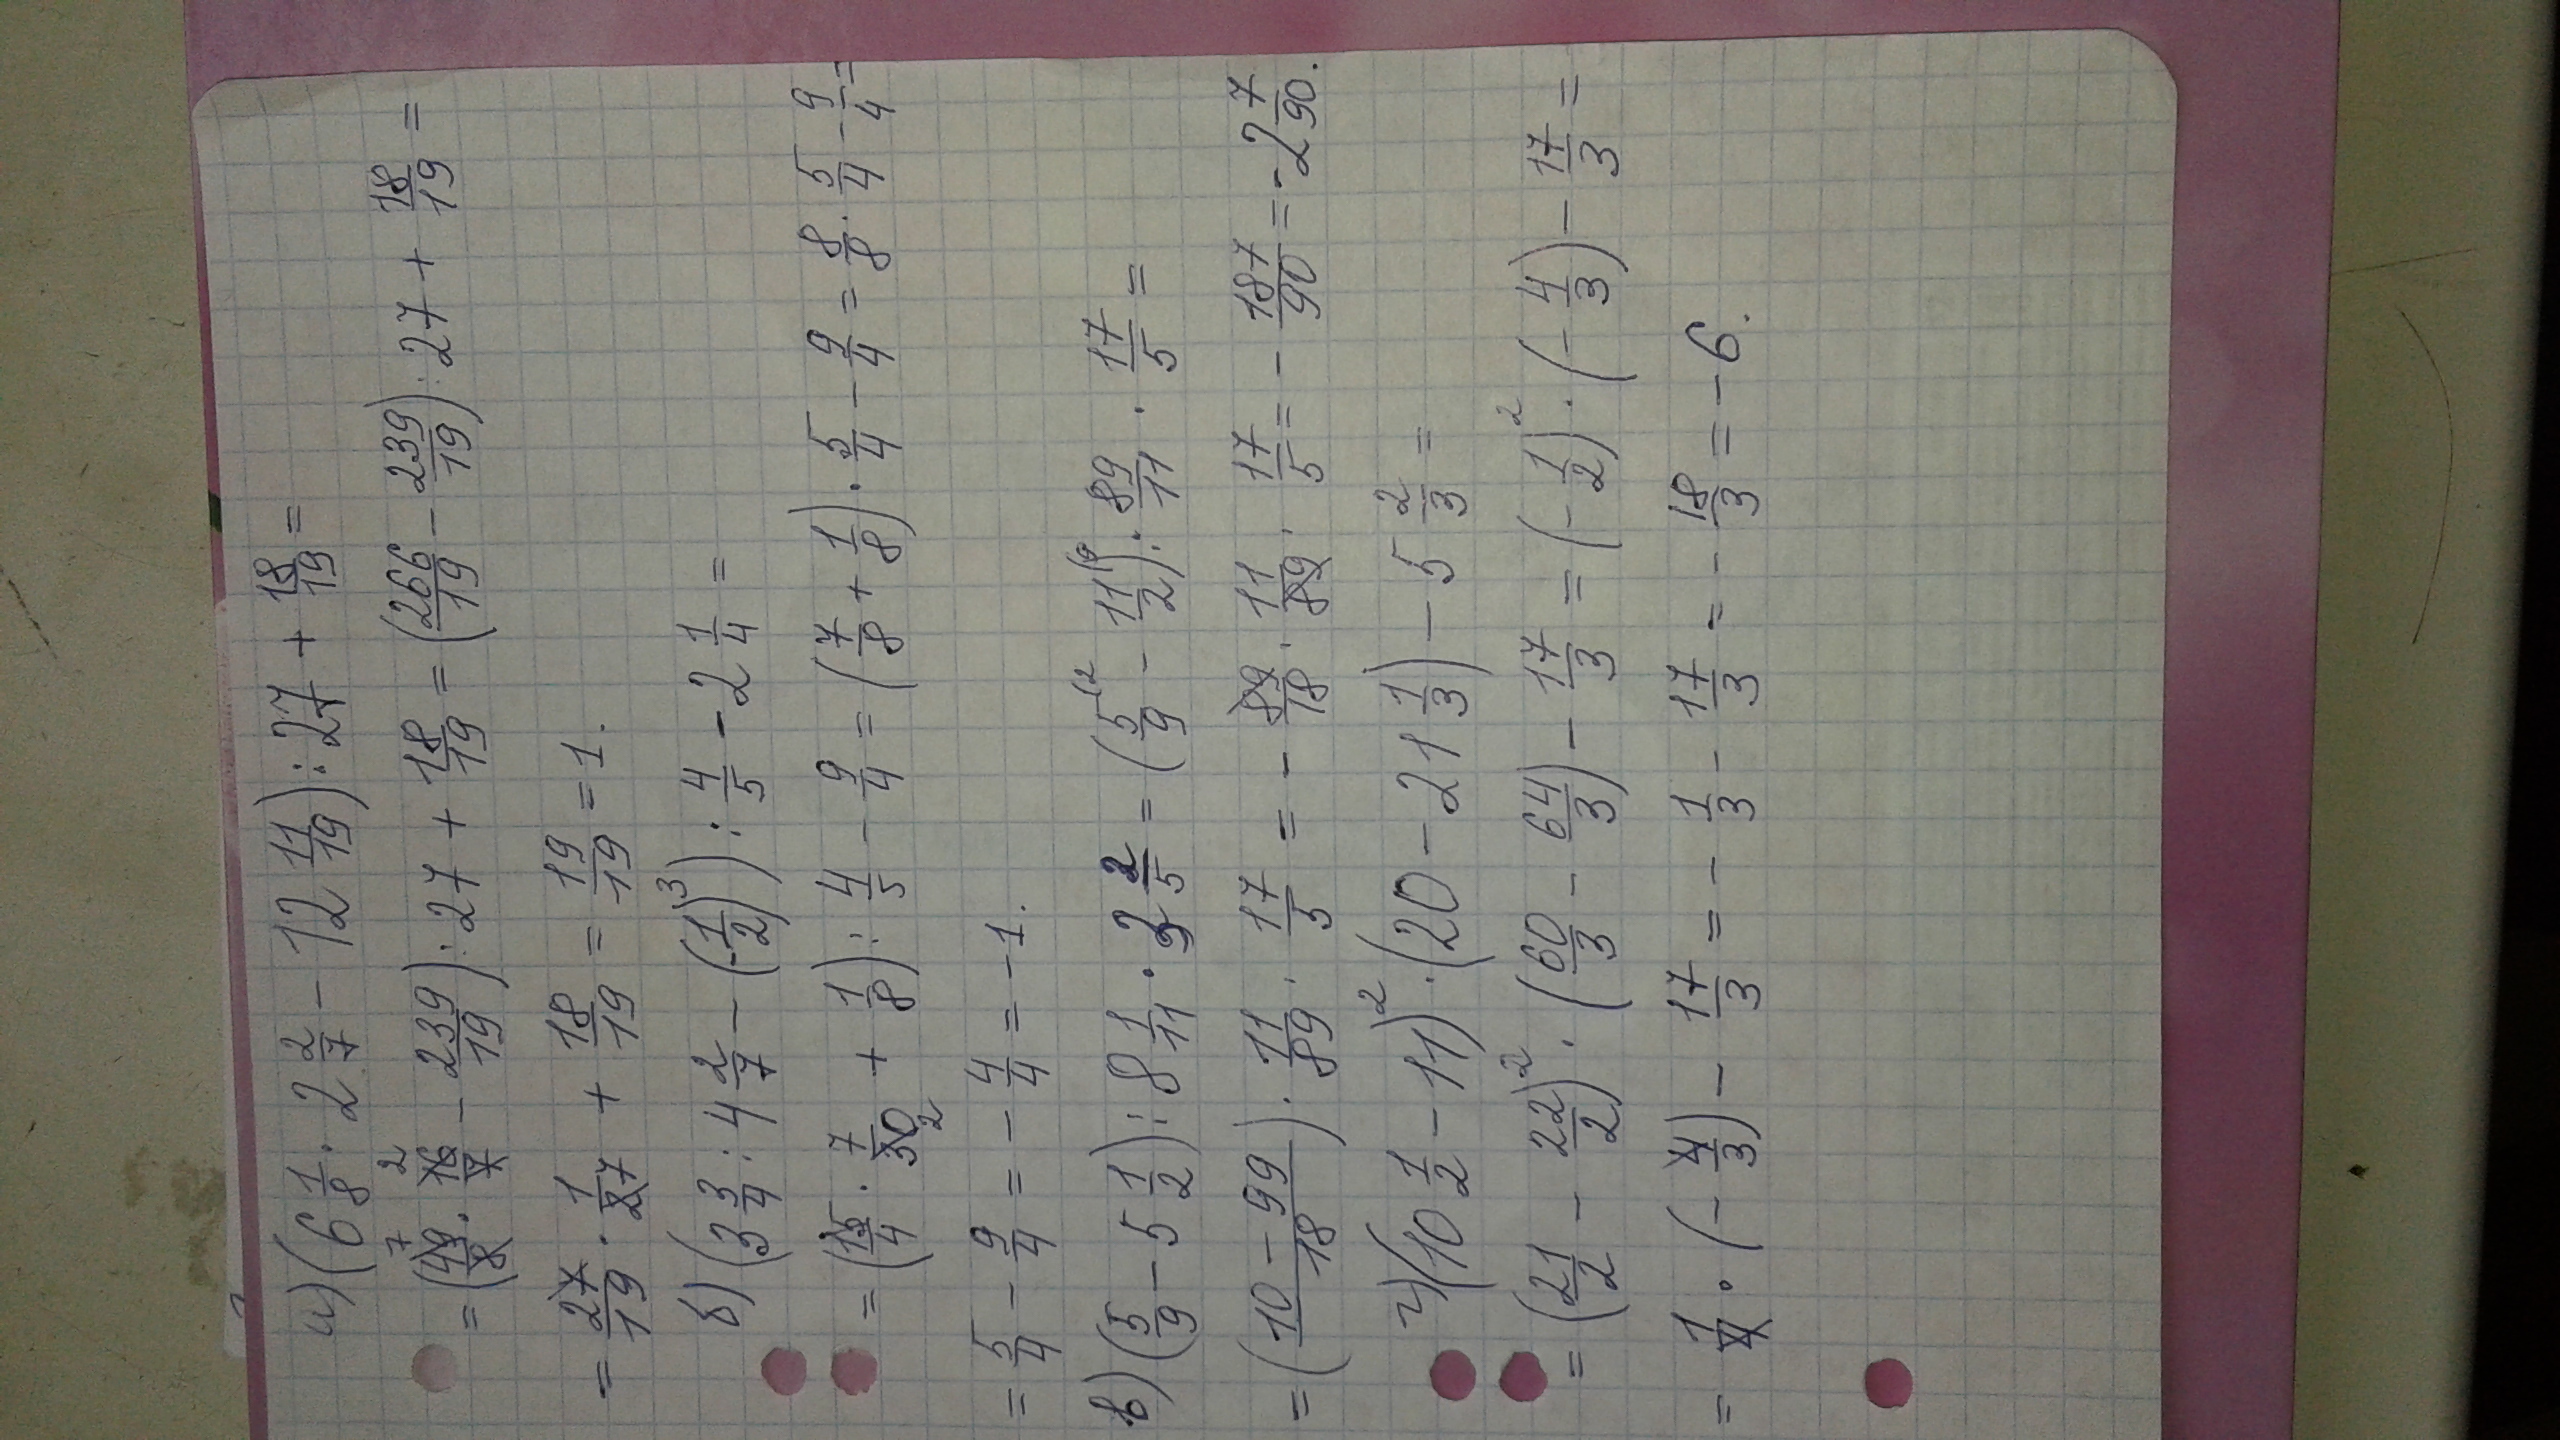 а) (6 1/8 · 2 2/7 − 12 11/19) : 27 + 18/19 =
= (49/8 · 16/7 − 239/19) : 27 + 18/19 = (266/19 − 239/19) : 27 + 18/19 =
= 27/19 · 1/27 + 18/19 = 19/19 = 1.
б) (3 3/4 : 4 2/7 − (−1/2)³) : 4/5 − 2 1/4 =
= (15/4 · 7/30 + 1/8) : 4/5 − 9/4 = (7/8 + 1/8) · 5/4 − 9/4 = 8/8 · 5/4 − 9/4 =
= 5/4 − 9/4 = − 4/4 = −1.
в) (5/9 − 5 1/2) : 8 1/11 · 3 2/5 = (5/9 − 11/2) : 89/11 · 17/5 =
= (10 − 99/18) · 11/89 · 17/5 = − 89/18 · 11/89 · 17/5 = − 187/90 = −2 7/90.
г) (10 1/2 − 11)² · (20 − 21 1/3) − 5 2/3 =
= (21/2 − 22/2)² · (60/3 − 64/3) − 17/3 = (−1/2)² · (− 4/3) − 17/3 =
= 1/4 · (− 4/3) − 17/3 = − 1/3 − 17/3 = − 18/3 = −6.